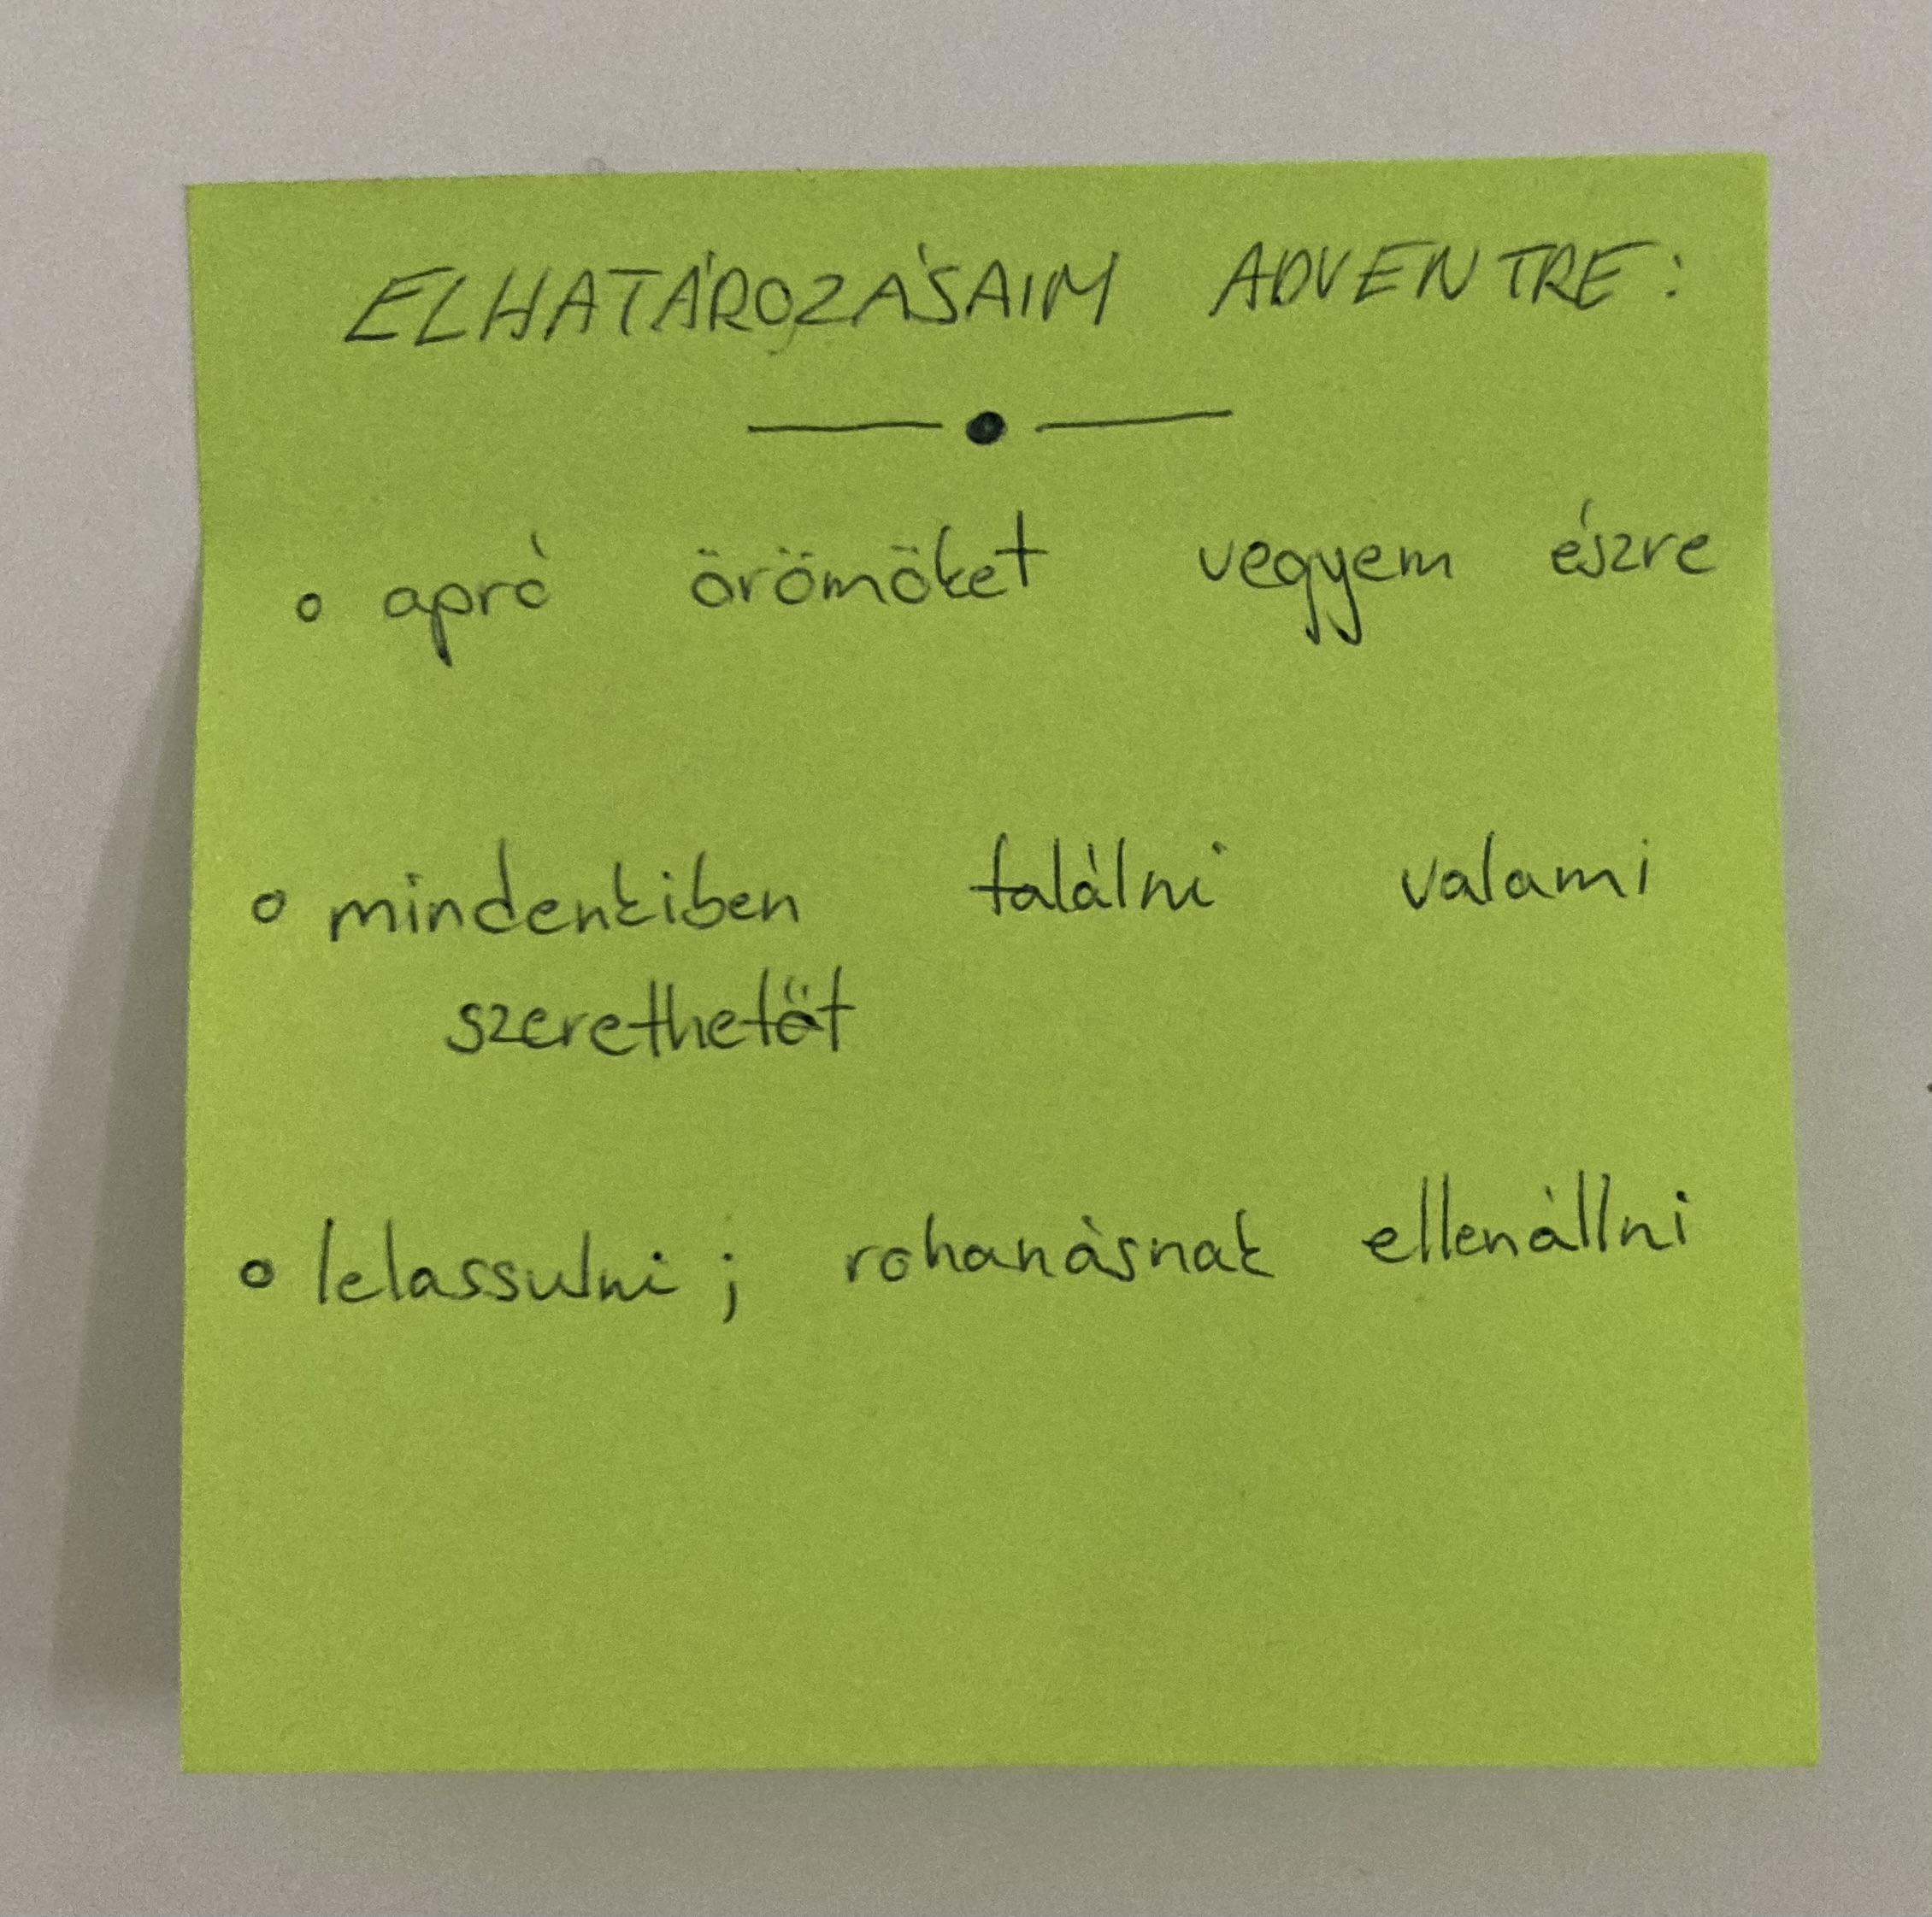 ELHATÁROZÁSAIM ADVENTRE:
• apró örömöket vegyem észre
• mindenkiben találni valami
szerethetőt
• lelassulni; rohanásnak ellenállni